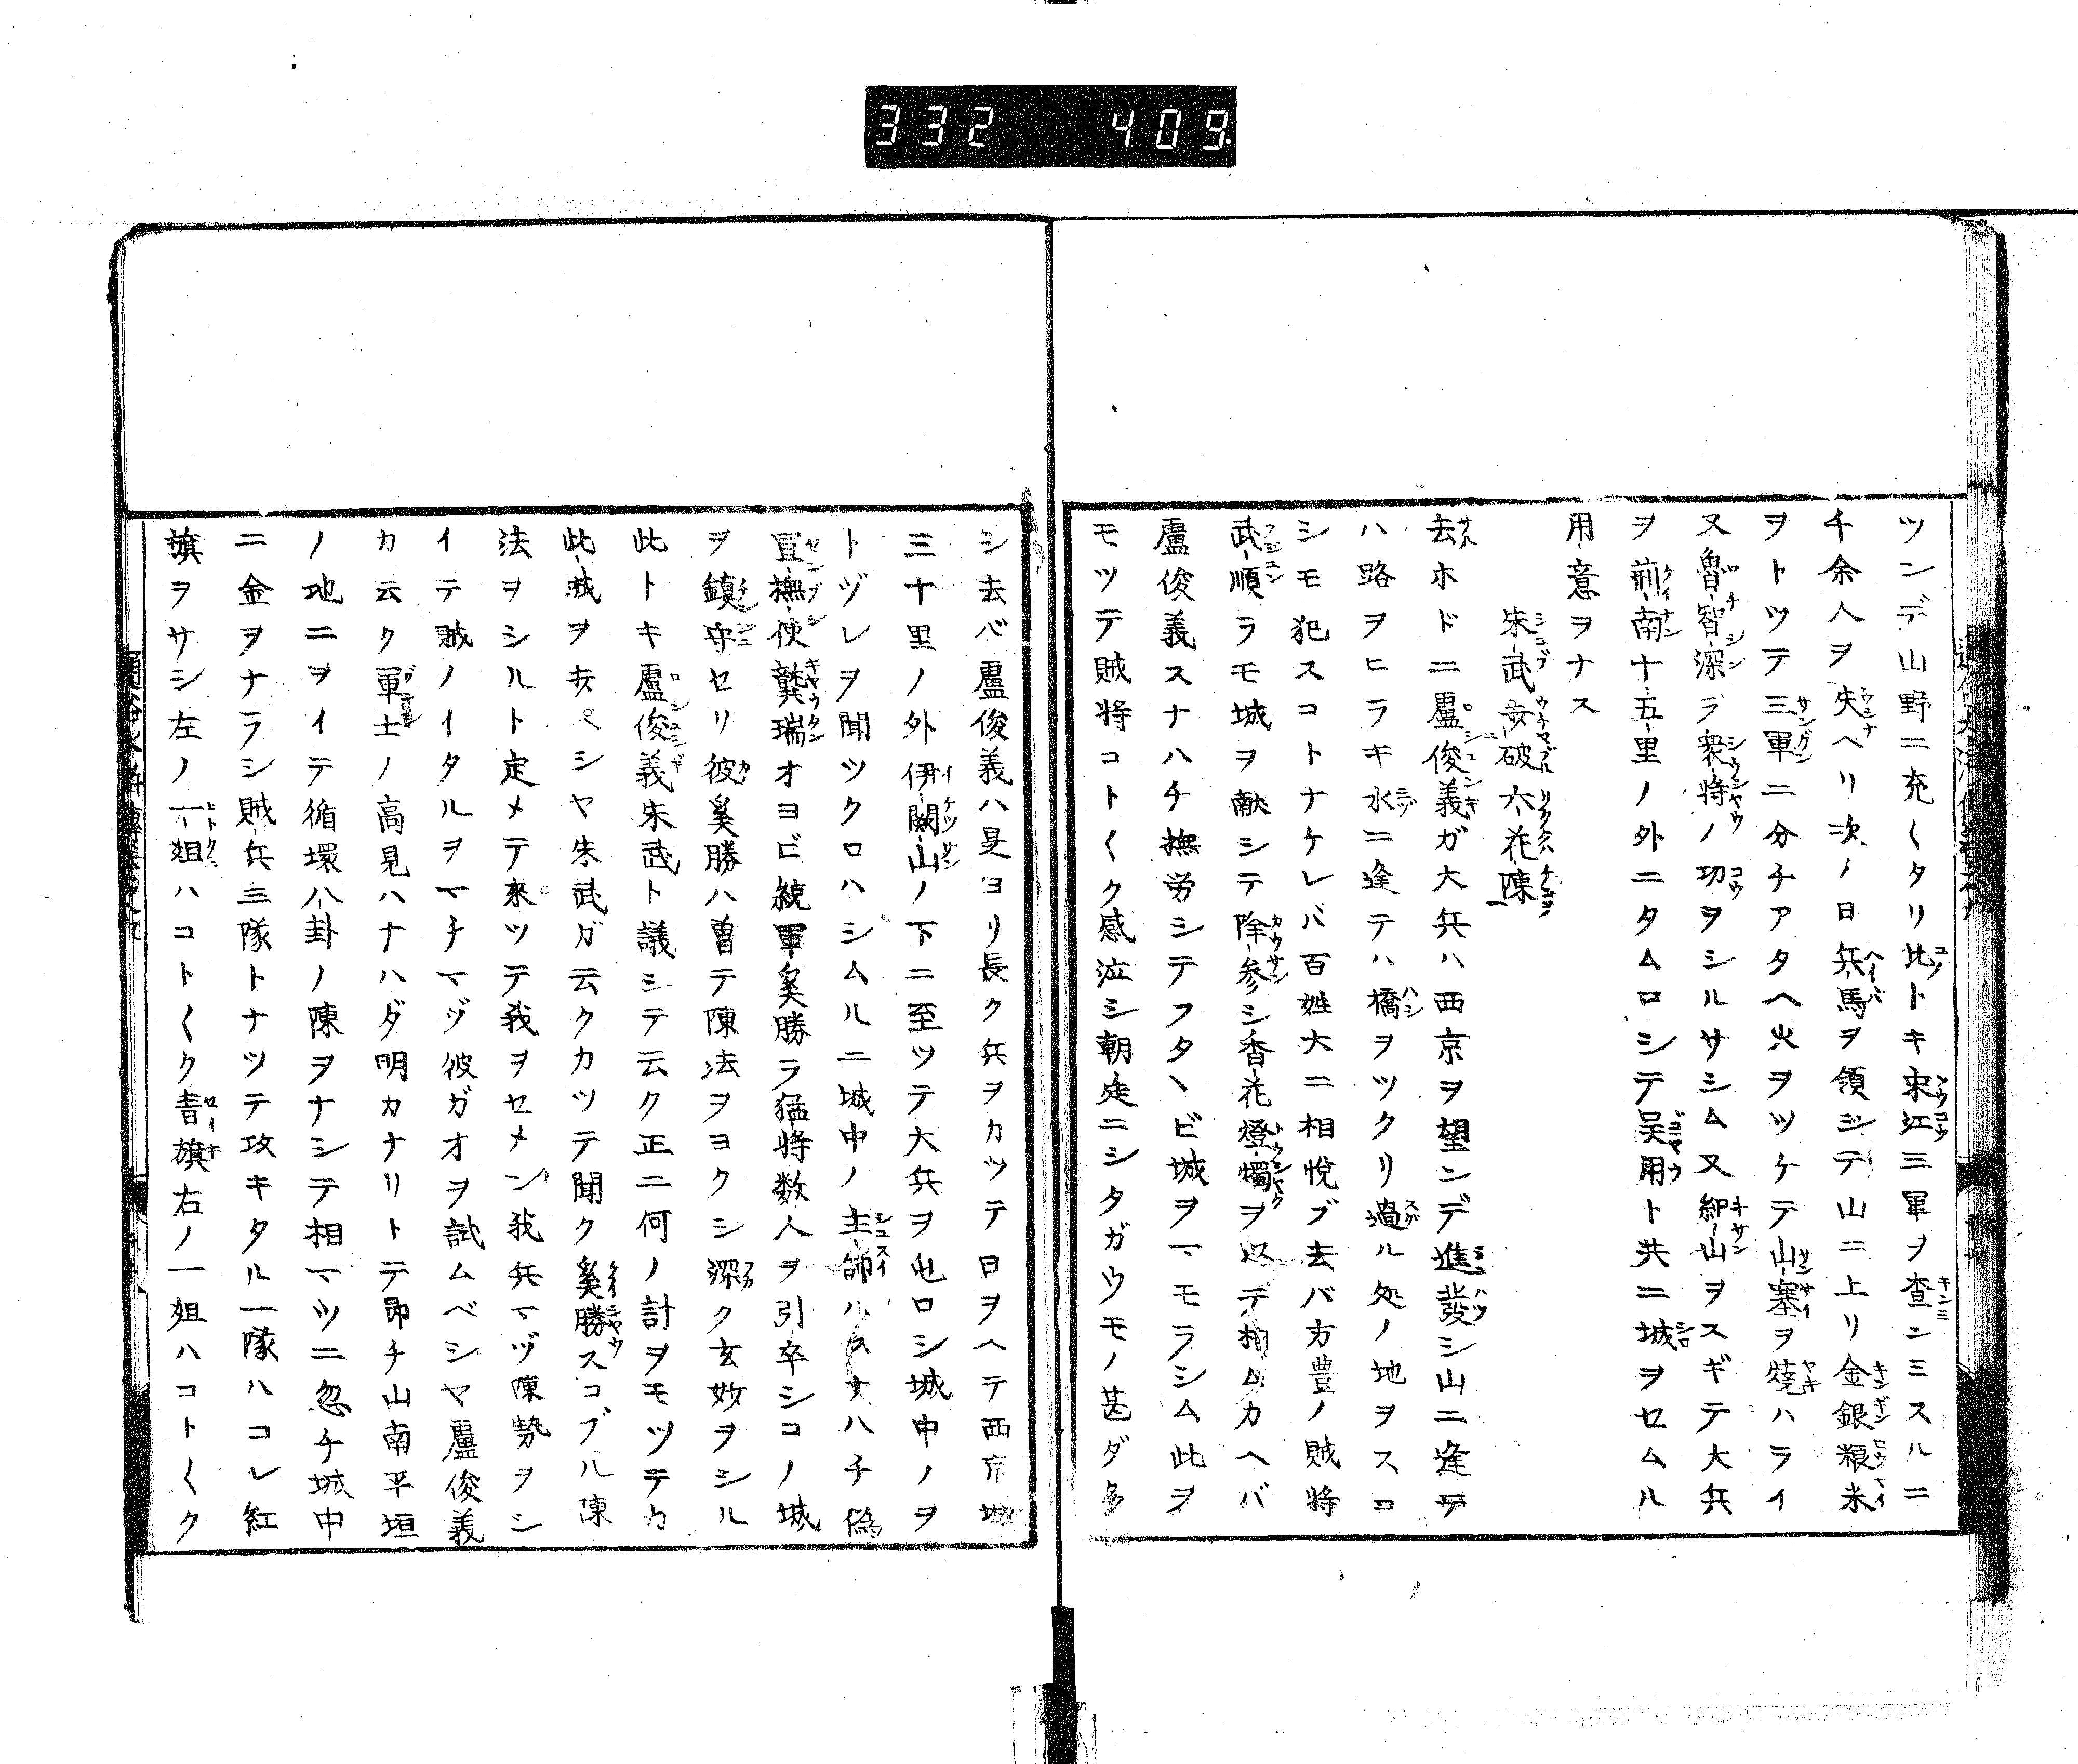 332 409
ツンデ山野ニ充〱タリ此トキ宋江三軍ヲ査ンミスルニ
千余人ヲ失ヘリ次ノ日兵馬ヲ領シテ山ニ上リ金銀粮米
ヲトツテ三軍ニ分チアタヘ火ヲツケテ山寨ヲ焼ハライ
又魯智深ラ衆将ノ功ヲシルサシム又紀山ヲスギテ大兵
ヲ荊南十五里ノ外ニタムロシテ吴用ト共ニ城ヲセムル
用意ヲナス
朱武安破六花陳
去ホドニ盧俊義ガ大兵ハ西京ヲ望ンデ進發シ山ニ逢テ
ハ路ヲヒラキ水ニ逢テハ橋ヲツクリ過ル処ノ地ヲスコ
シモ犯スコトナケレバ百姓大ニ相悦ブ去バ方豊ノ賊将
武順ラモ城ヲ献シテ降参シ香花燈燭ヲ以テ相ムカヘバ
盧俊義スナハチ撫労シテフタヽビ城ヲマモラシム此ヲ
モツテ賊将コト〱ク感泣シ朝廷ニシタガウモノ甚ダ多
シ去バ盧俊義ハ是ヨリ長ク兵ヲカツテ日ヲヘテ西京城
三十里ノ外伊闕山ノ下ニ至ツテ大兵ヲ屯ロシ城中ノヲ
トヅレヲ聞ツクロハシムルニ城中ノ主帥ハスナハチ偽
宣撫使龔瑞オヨビ統軍奚勝ラ猛将数人ヲ引卒シコノ城
ヲ鎮守セリ彼奚勝ハ曽テ陳法ヲヨクシ深ク玄妙ヲシル
此トキ盧俊義朱武ト議シテ云ク正ニ何ノ計ヲモツテカ
此城ヲ攻ベシヤ朱武ガ云クカツテ聞ク奚勝スコブル陳
法ヲシルト定メテ來ツテ我ヲセメン我兵マヅ陳勢ヲシ
イテ賊ノイタルヲマチマヅ彼ガオヲ試ムベシヤ盧俊義
カ云ク軍士ノ高見ハナハダ明カナリトテ即チ山南平垣
ノ地ニヲイテ循環八卦ノ陳ヲナシテ相マツニ忽チ城中
ニ金ヲナラシ賊兵三隊トナツテ攻キタル一隊ハコレ紅
旗ヲサシ左ノ一組ハコト〱ク青旗右ノ一組ハコト〱ク